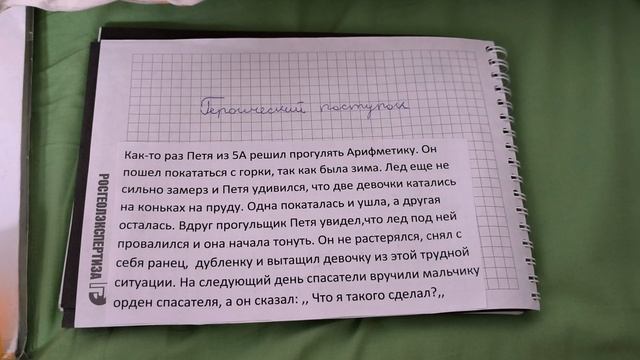 Героический поступок
Как-то раз Петя из 5А решил прогулять Арифметику. Он
пошел покататься с горки, так как была зима. Лед еще не
сильно замерз и Петя удивился, что две девочки катались
на коньках на пруду. Одна покаталась и ушла, а другая
осталась. Вдруг прогульщик Петя увидел,что лед под ней
провалился и она начала тонуть. Он не растерялся, снял с
себя ранец,  дубленку и вытащил девочку из этой трудной
ситуации. На следующий день спасатели вручили мальчику
орден спасателя, а он сказал: ,, Что я такого сделал?,,
РОСГЕОЛЭКСПЕРТИЗА